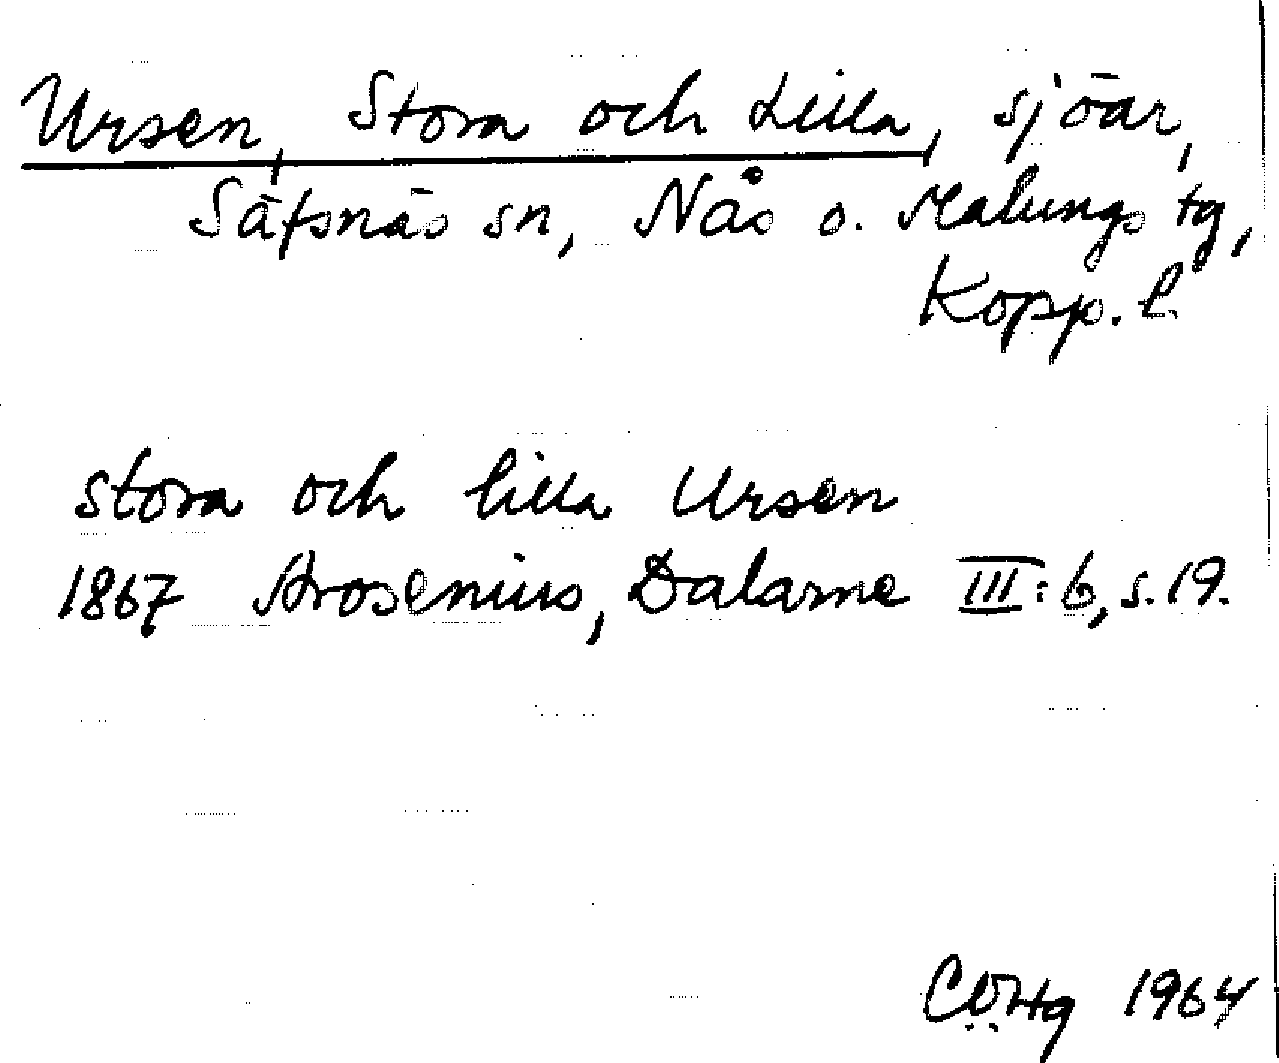 Ursen, Stora och Lilla, sjöar,
Säfsnäs sn, Nås o. Malungs tg,
Kopp. l.
stora och lilla Ursen
1867 Arosenius, Dalarne III:6, s. 19.
1964